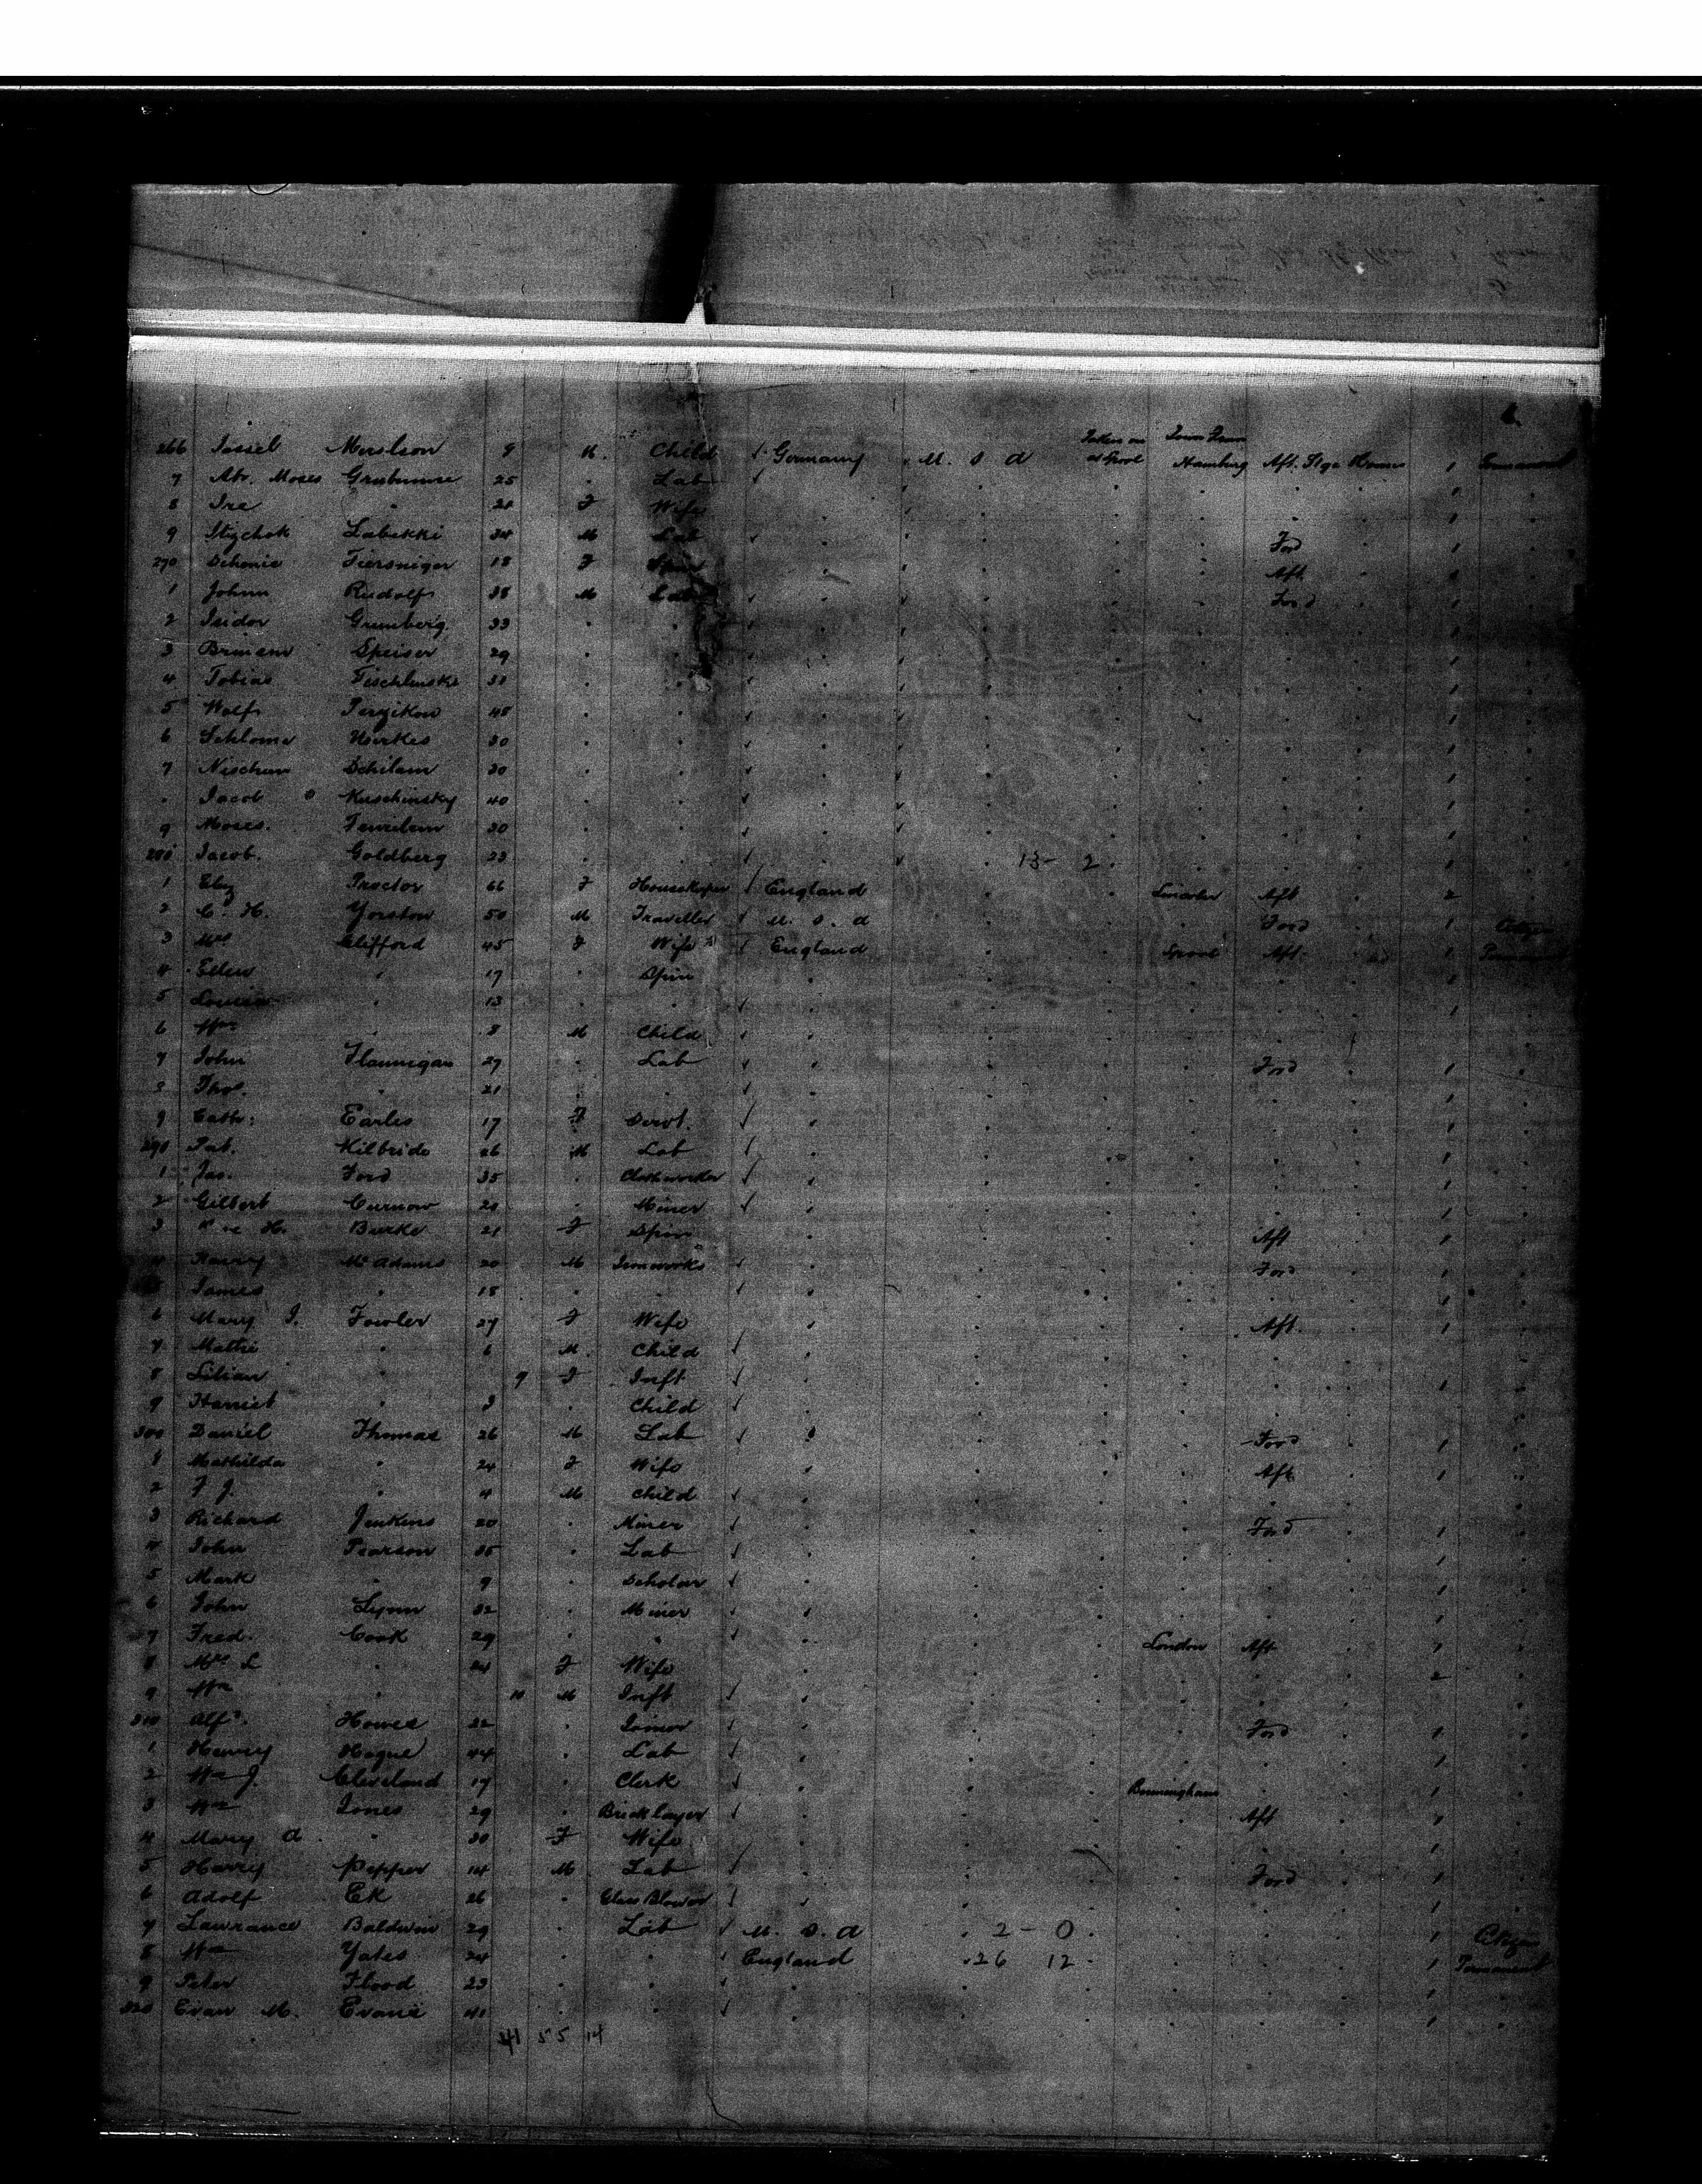 6
266 Jossel 9 M. Child Germany U. S. A Taken on at Lpool Town From Hamburg Aft. Stge 1 Permanent
7 Abr. Moses 25 . Lab . . . . . . 1 .
8 " F Wife . . . . . . 1 .
9 Labekki 34 M Lab . . . . Ford . 1 .
270 18 F Spin . . . . Aft . 1 .
1 Johnn Rudolf 38 M Lab . . . . Ford . 1 .
2 Isidor Grunberg 33 . . . . . . . . 1 .
3 Speiser 29 . . . . . . . . 1 .
4 Tobias . . . . . . . . 1 .
5 Wolf 45 . . . . . . . . 1 .
6 30 . . . . . . . . 1 .
7 30 . . . . . . . . 1 .
. Jacob Kuschinsky 40 . . . . . . . . 1 .
9 Moses 30 . . . . . . . . 1 .
280 Jacob. Goldberg 23 . . . 13 - 2 . . . . 1 .
1 Eliz Proctor 66 F Housekeeper England . . Aft . 2 .
2 C. H. Yorston 50 M Traveller U. S. A . . . Ford . 1 Citizen
3 Mrs Clifford 45 F Wife England . . Lpool Aft . 1 Permanent
4 Ellen " 17 . Spin . . . . . . 1 .
5 Louisa " 13 . . . . . . . . 1 .
6 Wm " 8 M Child . . . . . . .
7 John Flannigan 27 . Lab . . . . Ford . 1 .
8 Thos. " 21 . . . . . . . . 1 .
9 Cath: Earles 17 F Servt. . . . . . . 1 .
290 Pat. Kilbride 26 M Lab . . . . . . 1 .
1 Jas. Ford 35 . Clothworker . . . . . . 1 .
2 Gilbert Curnow . Miner . . . . . . 1 .
3 H. Burke 21 F Spin . . . . Aft . 1 .
4 Harry McAdams 20 M Ironworks . . . . Ford . 1 .
5 James " 18 . . . . . . . . 1 .
6 Mary J. Fowler 27 F Wife . . . . Aft. . 1 .
7 " 6 M. Child . . . . . . .
8 Lilian " 9 F Inft . . . . . . 1 .
9 Harriet " 3 . Child . . . . . . .
300 Daniel Thomas 26 M Lab . . . . Ford . 1 .
1 Mathilda " 24 F Wife . . . . Aft . 1 .
2 F J. " 4 M Child . . . . . . .
3 Richard Jenkins 20 . Miner . . . . Ford . 1 .
4 John Pearson 35 . Lab . . . . . . 1 .
5 Mark " 9 . Scholar . . . . . . 1 .
6 John Lynn 32 . Miner . . . . . . 1 .
7 Fred. Cook 29 . " . . . London Aft . 1 .
8 Mrs L " 24 F Wife . . . . . . 2 .
9 Wm " 10 M Inft . . . . . . .
310 Alfd. Howes 22 . Joiner . . . . Ford . 1 .
1 Henry Hague 44 . Lab . . . . . . 1 .
2 Wm J. Cleveland 17 . Clerk . . . Birmingham . . 1 .
3 Wm Jones 29 . Bricklayer . . . . Aft . 1 .
4 Mary A. " 30 F Wife . . . . . . 1 .
5 Harry Pepper 14 M Lab . . . . Ford . 1 .
6 Adolf Ek 26 . Glass Blower . . . . . . 1 .
7 Lawrance Baldwin 29 . Lab U. S. A . 2 - 0 . . . . 1 Citizen
8 Wm Yates 24 . . England . 26 12 . . . . 1 Permanent
9 Peter Flood 23 . . . . . . . . 1 .
320 Evan M. Evans 41 . . . . . . . . 1 .
41 55 14